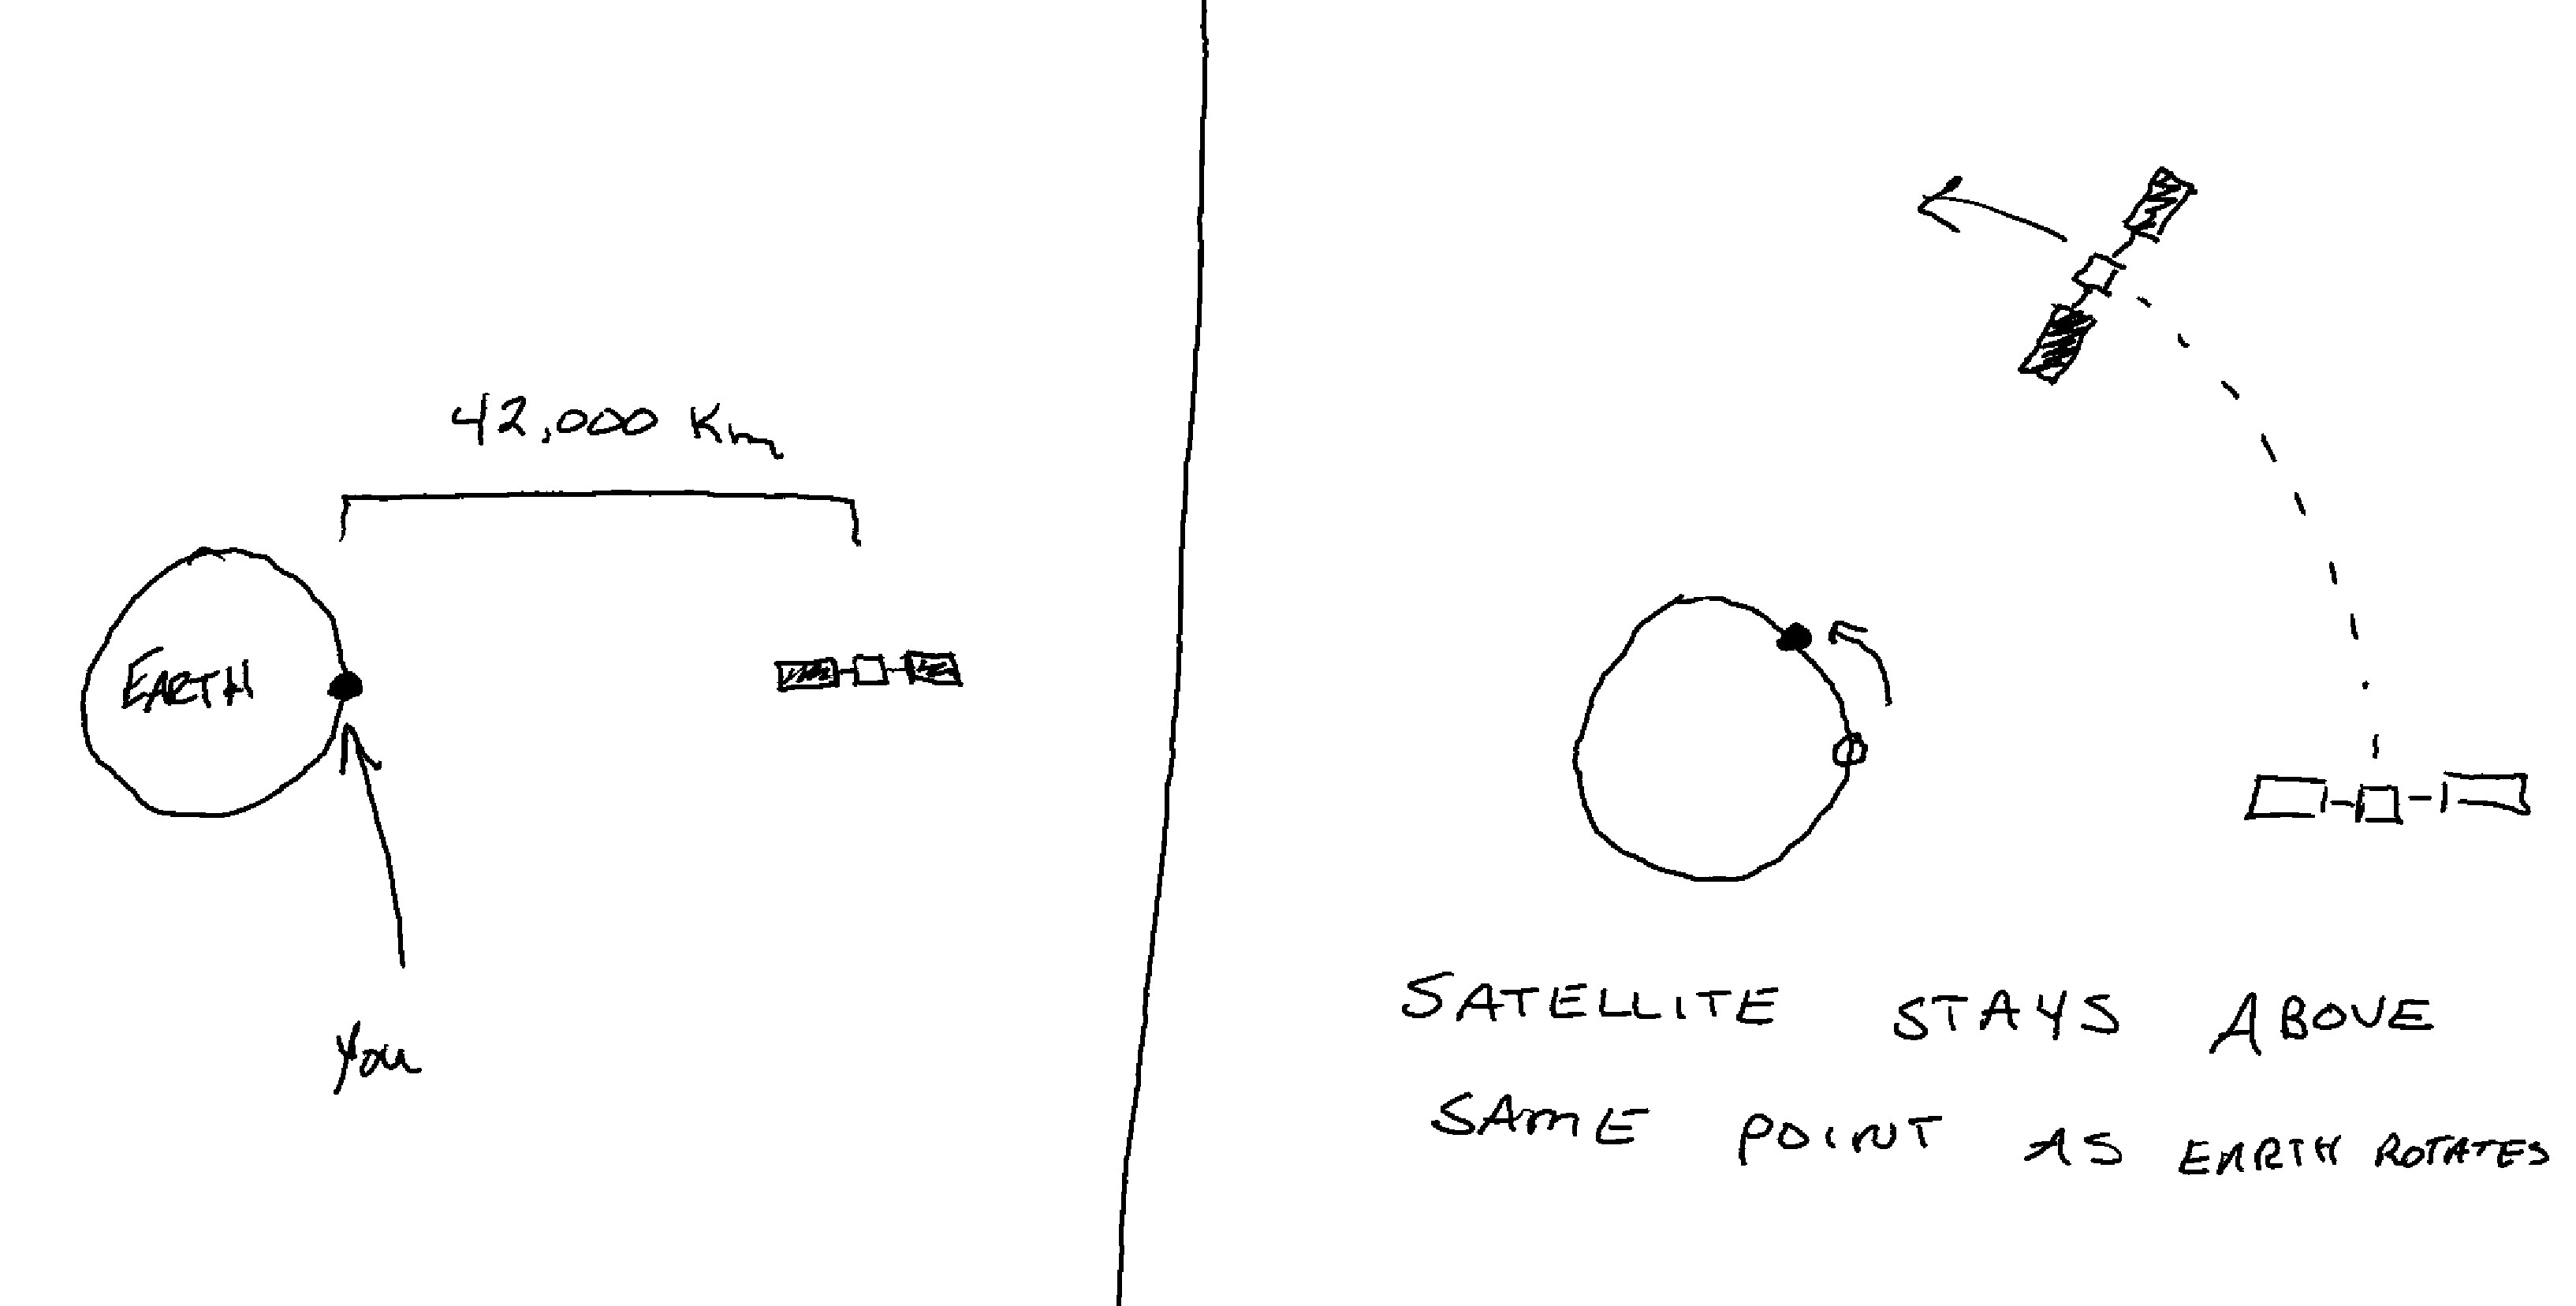 42,000 Km
EARTH
you
SATELLITE STAYS ABOVE
SAME POINT AS EARTH ROTATES